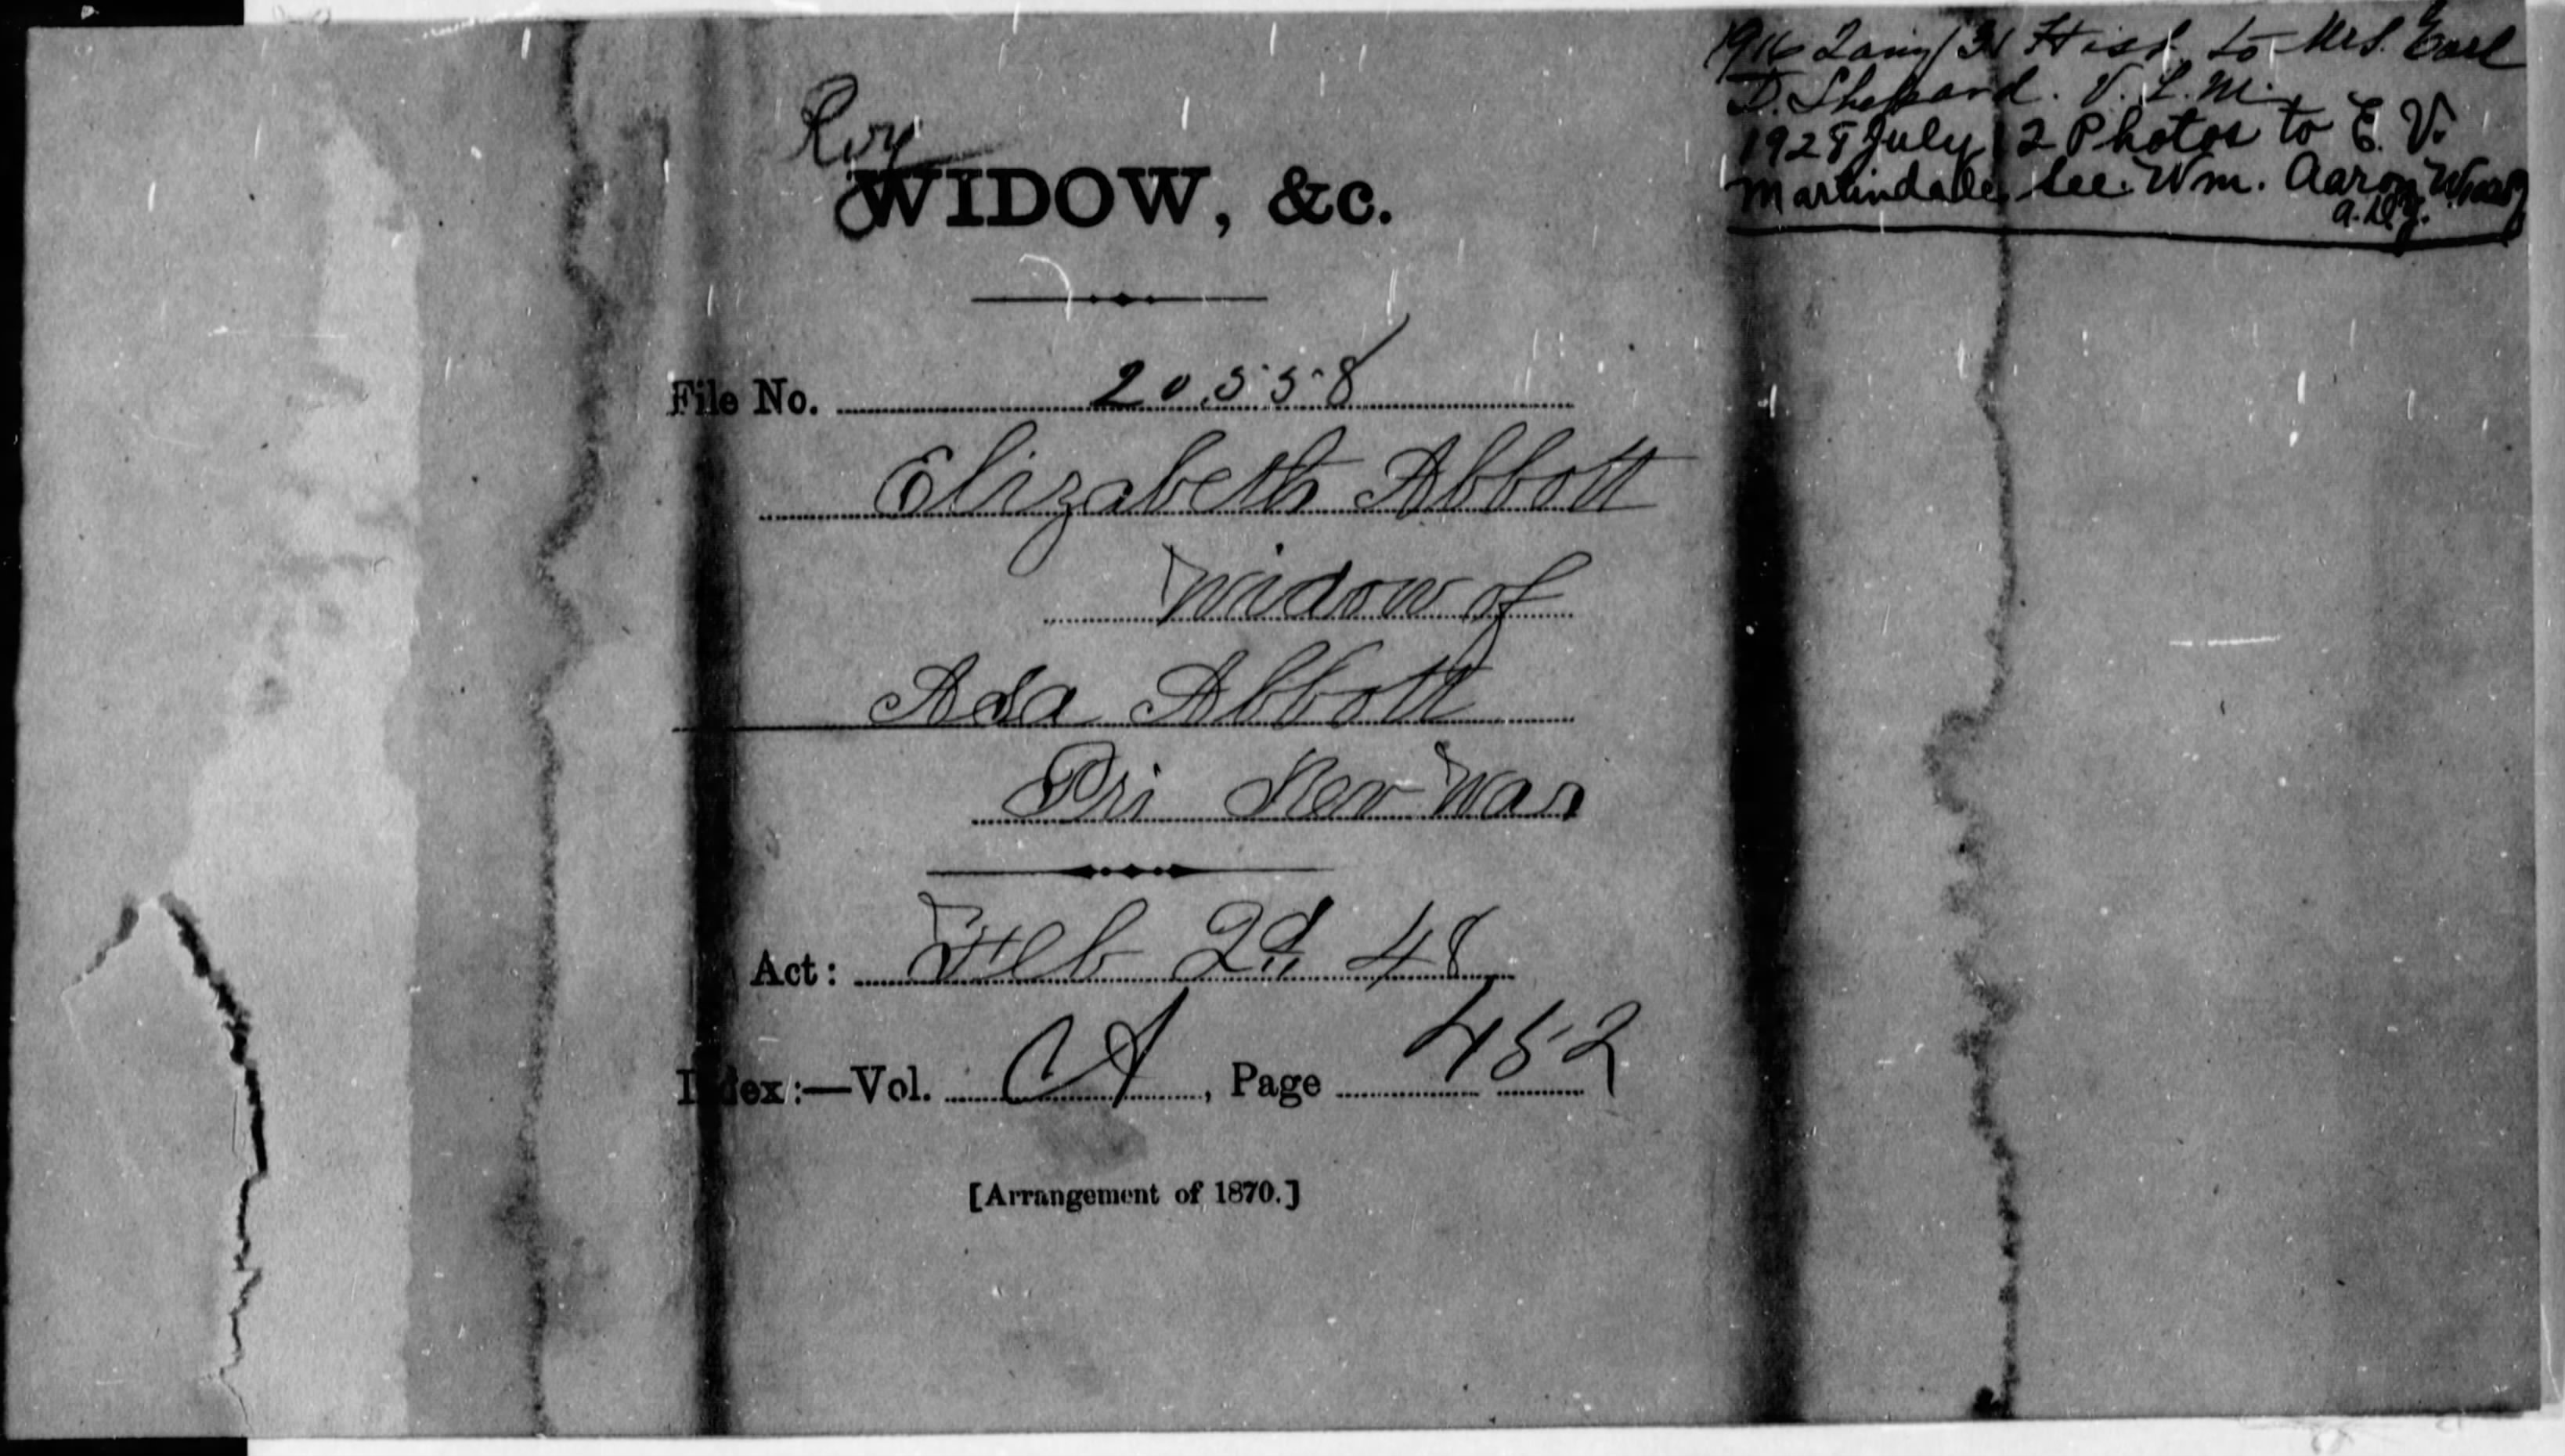 Rev
WIDOW, &c.
File No. 20558
Elizabeth Abbott
Widow of
Asa Abbott
Pri Rev War
Act: Feb 2d 48
Index:—Vol. A, Page 452
[Arrangement of 1870.]
1916 Hist. to Mrs. Earl
D. Sheppard. V. L. M.
1928 July 12 Photos to E. V.
Martindale see Wm. Aaron